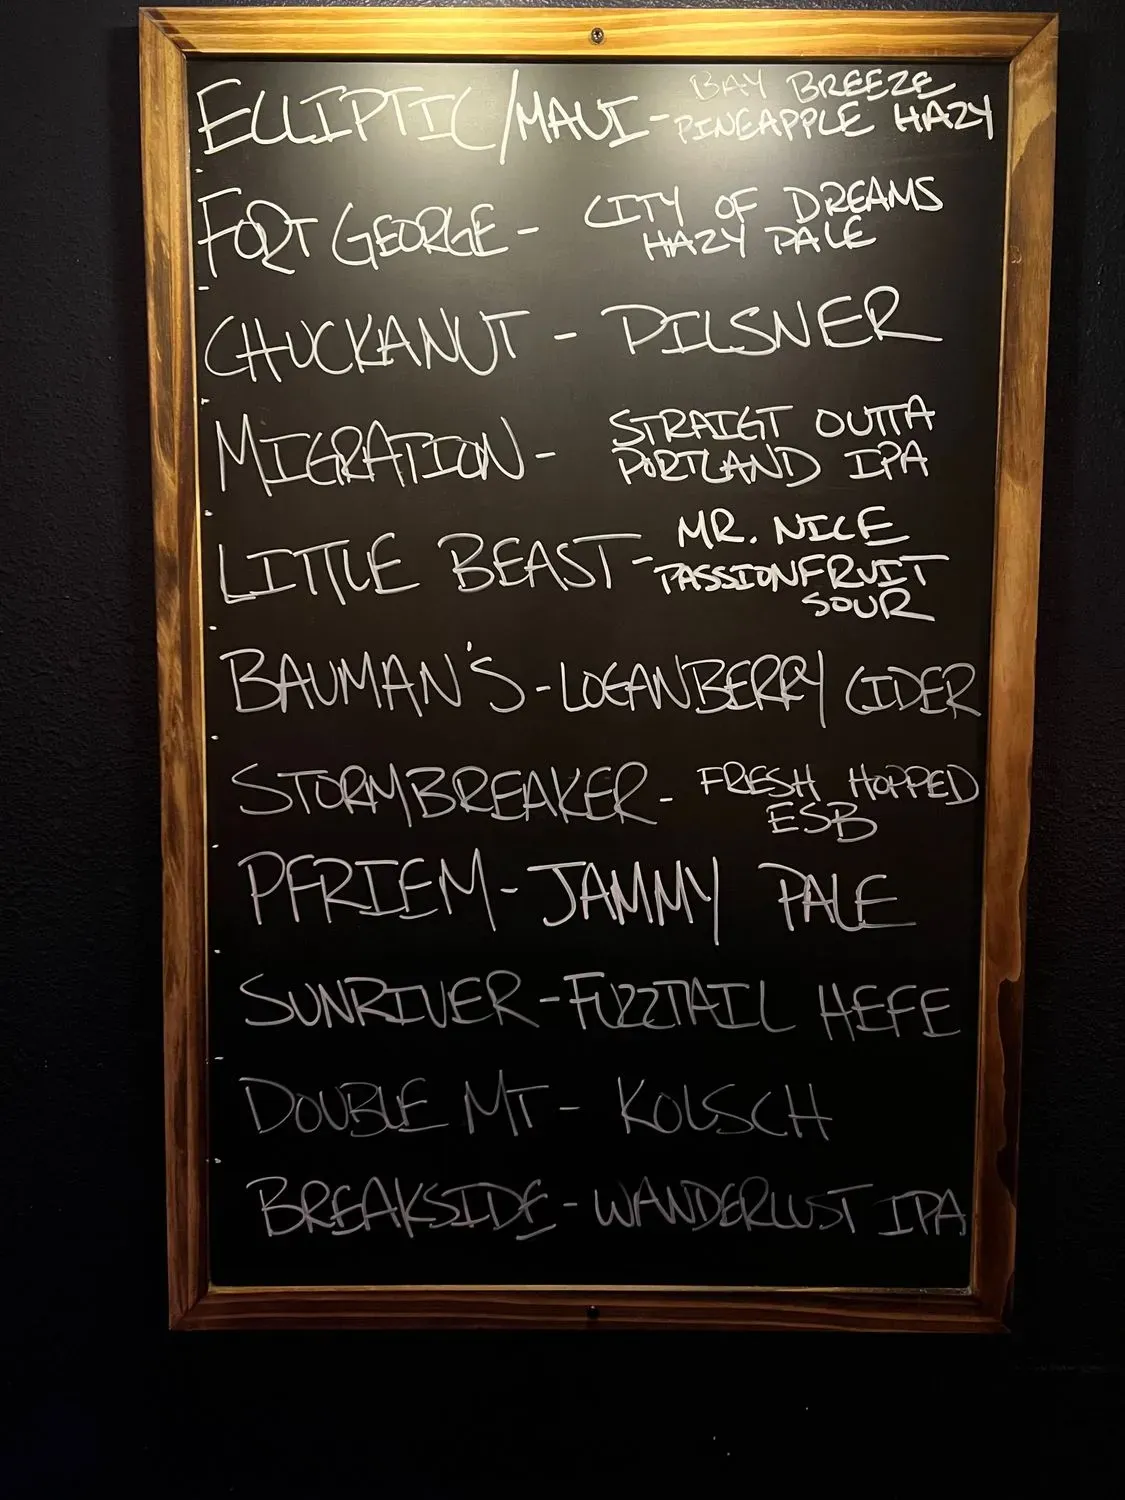 ELLIPTIC/MAUI - BAY BREEZE
PINEAPPLE HAZY
FORT GEORGE - CITY OF DREAMS
HAZY PALE
CHUCKANUT - PILSNER
MIGRATION - STRAIGT OUTTA
PORTLAND IPA
LITTLE BEAST - MR. NICE
PASSIONFRUIT
SOUR
BAUMAN'S - LOGANBERRY CIDER
STORMBREAKER - FRESH HOPPED
ESB
PFRIEM - JAMMY PALE
SUNRIVER - FUZZTAIL HEFE
DOUBLE MT - KOLSCH
BREAKSIDE - WANDERLUST IPA